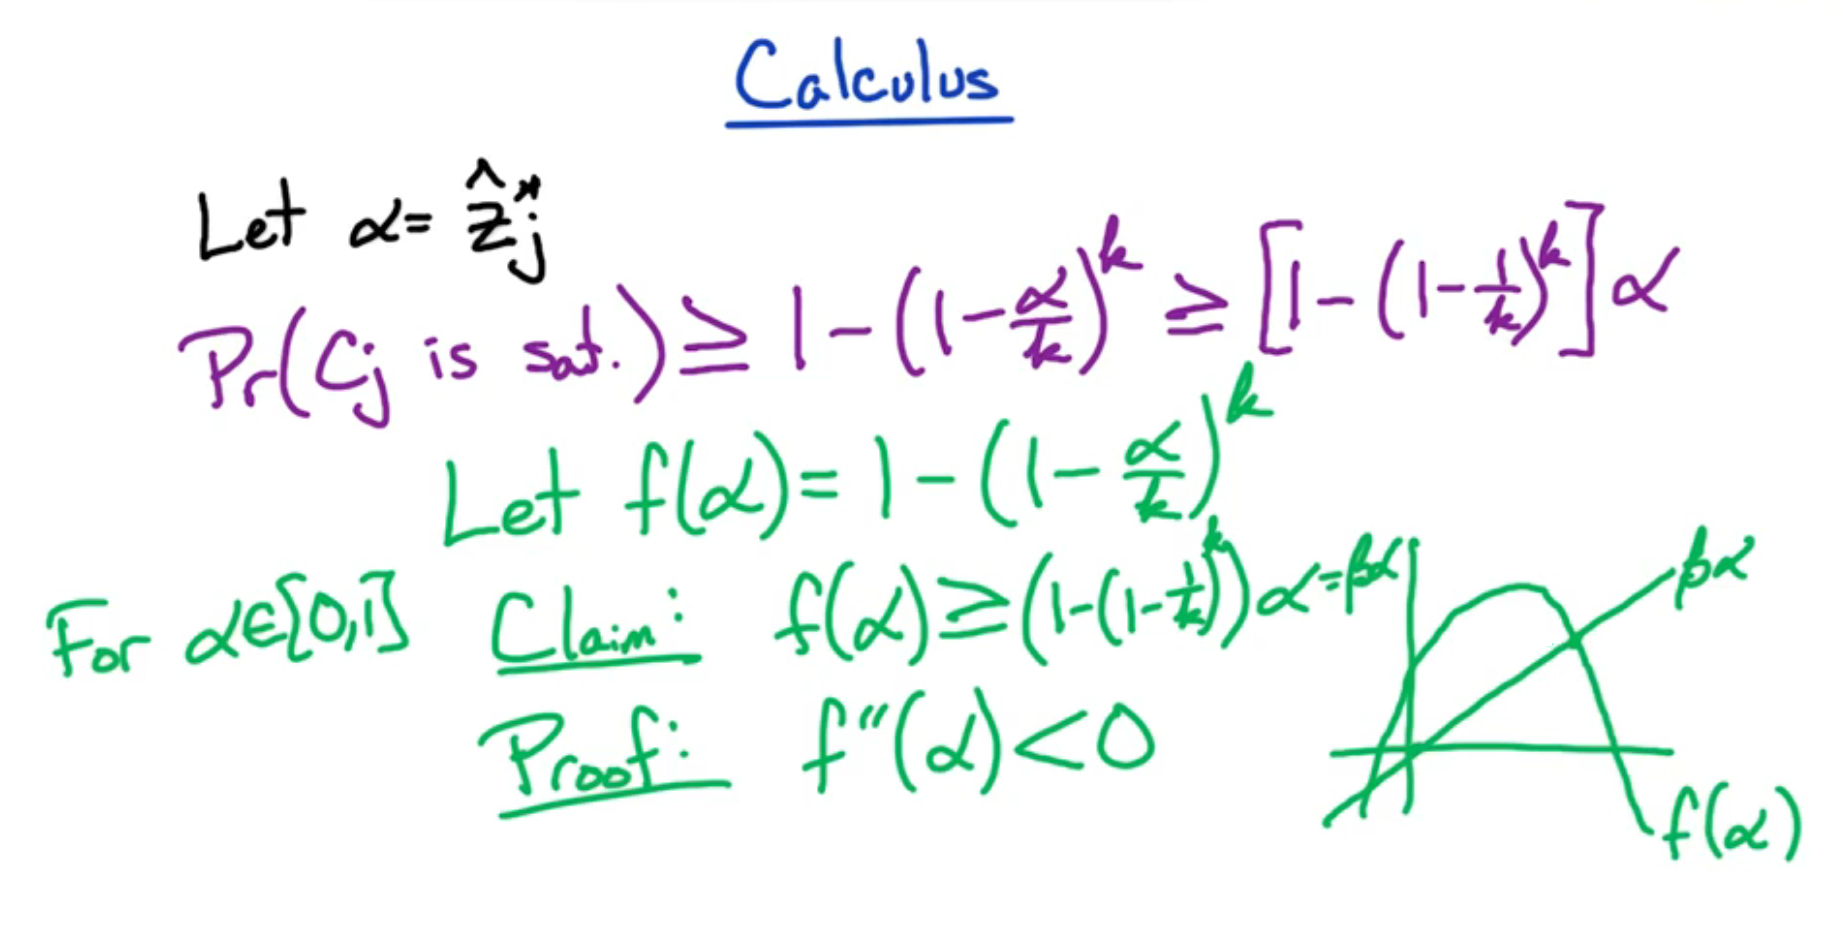 Calculus
Let α = ẑ*_j
Pr(C_j is sat.) ≥ 1 - (1 - α/k)^k ≥ [1 - (1 - 1/k)^k] α
Let f(α) = 1 - (1 - α/k)^k
For α ∈ [0,1] Claim: f(α) ≥ (1 - (1 - 1/k)^k) α = βα
βα
Proof: f''(α) < 0
f(α)